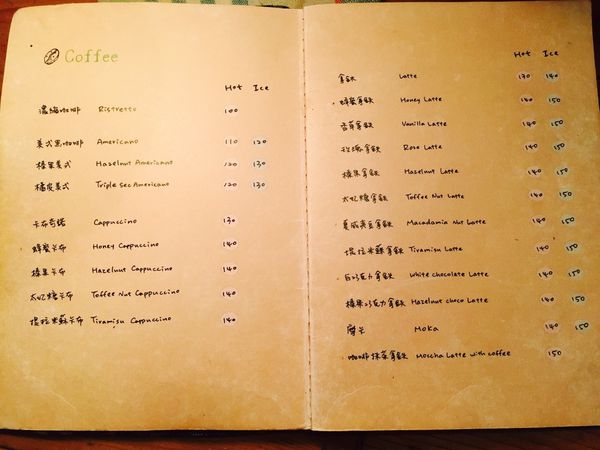 Coffee
Hot Ice
濃縮咖啡 Ristretto 100
美式黑咖啡 Americano 110 120
榛果美式 Hazelnut Americano 120 130
橘皮美式 Triple sec Americano 120 130
卡布奇諾 Cappuccino 130
蜂蜜卡布 Honey Cappuccino 140
榛果卡布 Hazelnut Cappuccino 140
太妃糖卡布 Toffee Nut Cappuccino 140
提拉米蘇卡布 Tiramisu Cappuccino 140
Hot Ice
拿鐵 Latte 130 140
蜂蜜拿鐵 Honey Latte 140 150
香草拿鐵 Vanilla Latte 140 150
玫瑰拿鐵 Rose Latte 140 150
榛果拿鐵 Hazelnut Latte 140 150
太妃糖拿鐵 Toffee Nut Latte 140 150
夏威夷豆拿鐵 Macadamia Nut Latte 140 150
提拉米蘇拿鐵 Tiramisu Latte 140 150
白巧克力拿鐵 White chocolate Latte 140 150
榛果巧克力拿鐵 Hazelnut choco Latte 140 150
摩卡 Moka 140 150
咖啡抹茶拿鐵 Moccha Latte with coffee 150